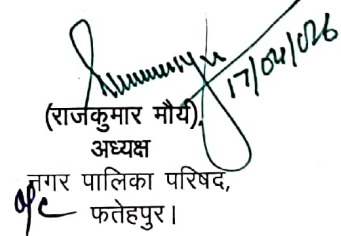 17/04/026
(राजकुमार मौर्य)
अध्यक्ष
नगर पालिका परिषद,
फतेहपुर।